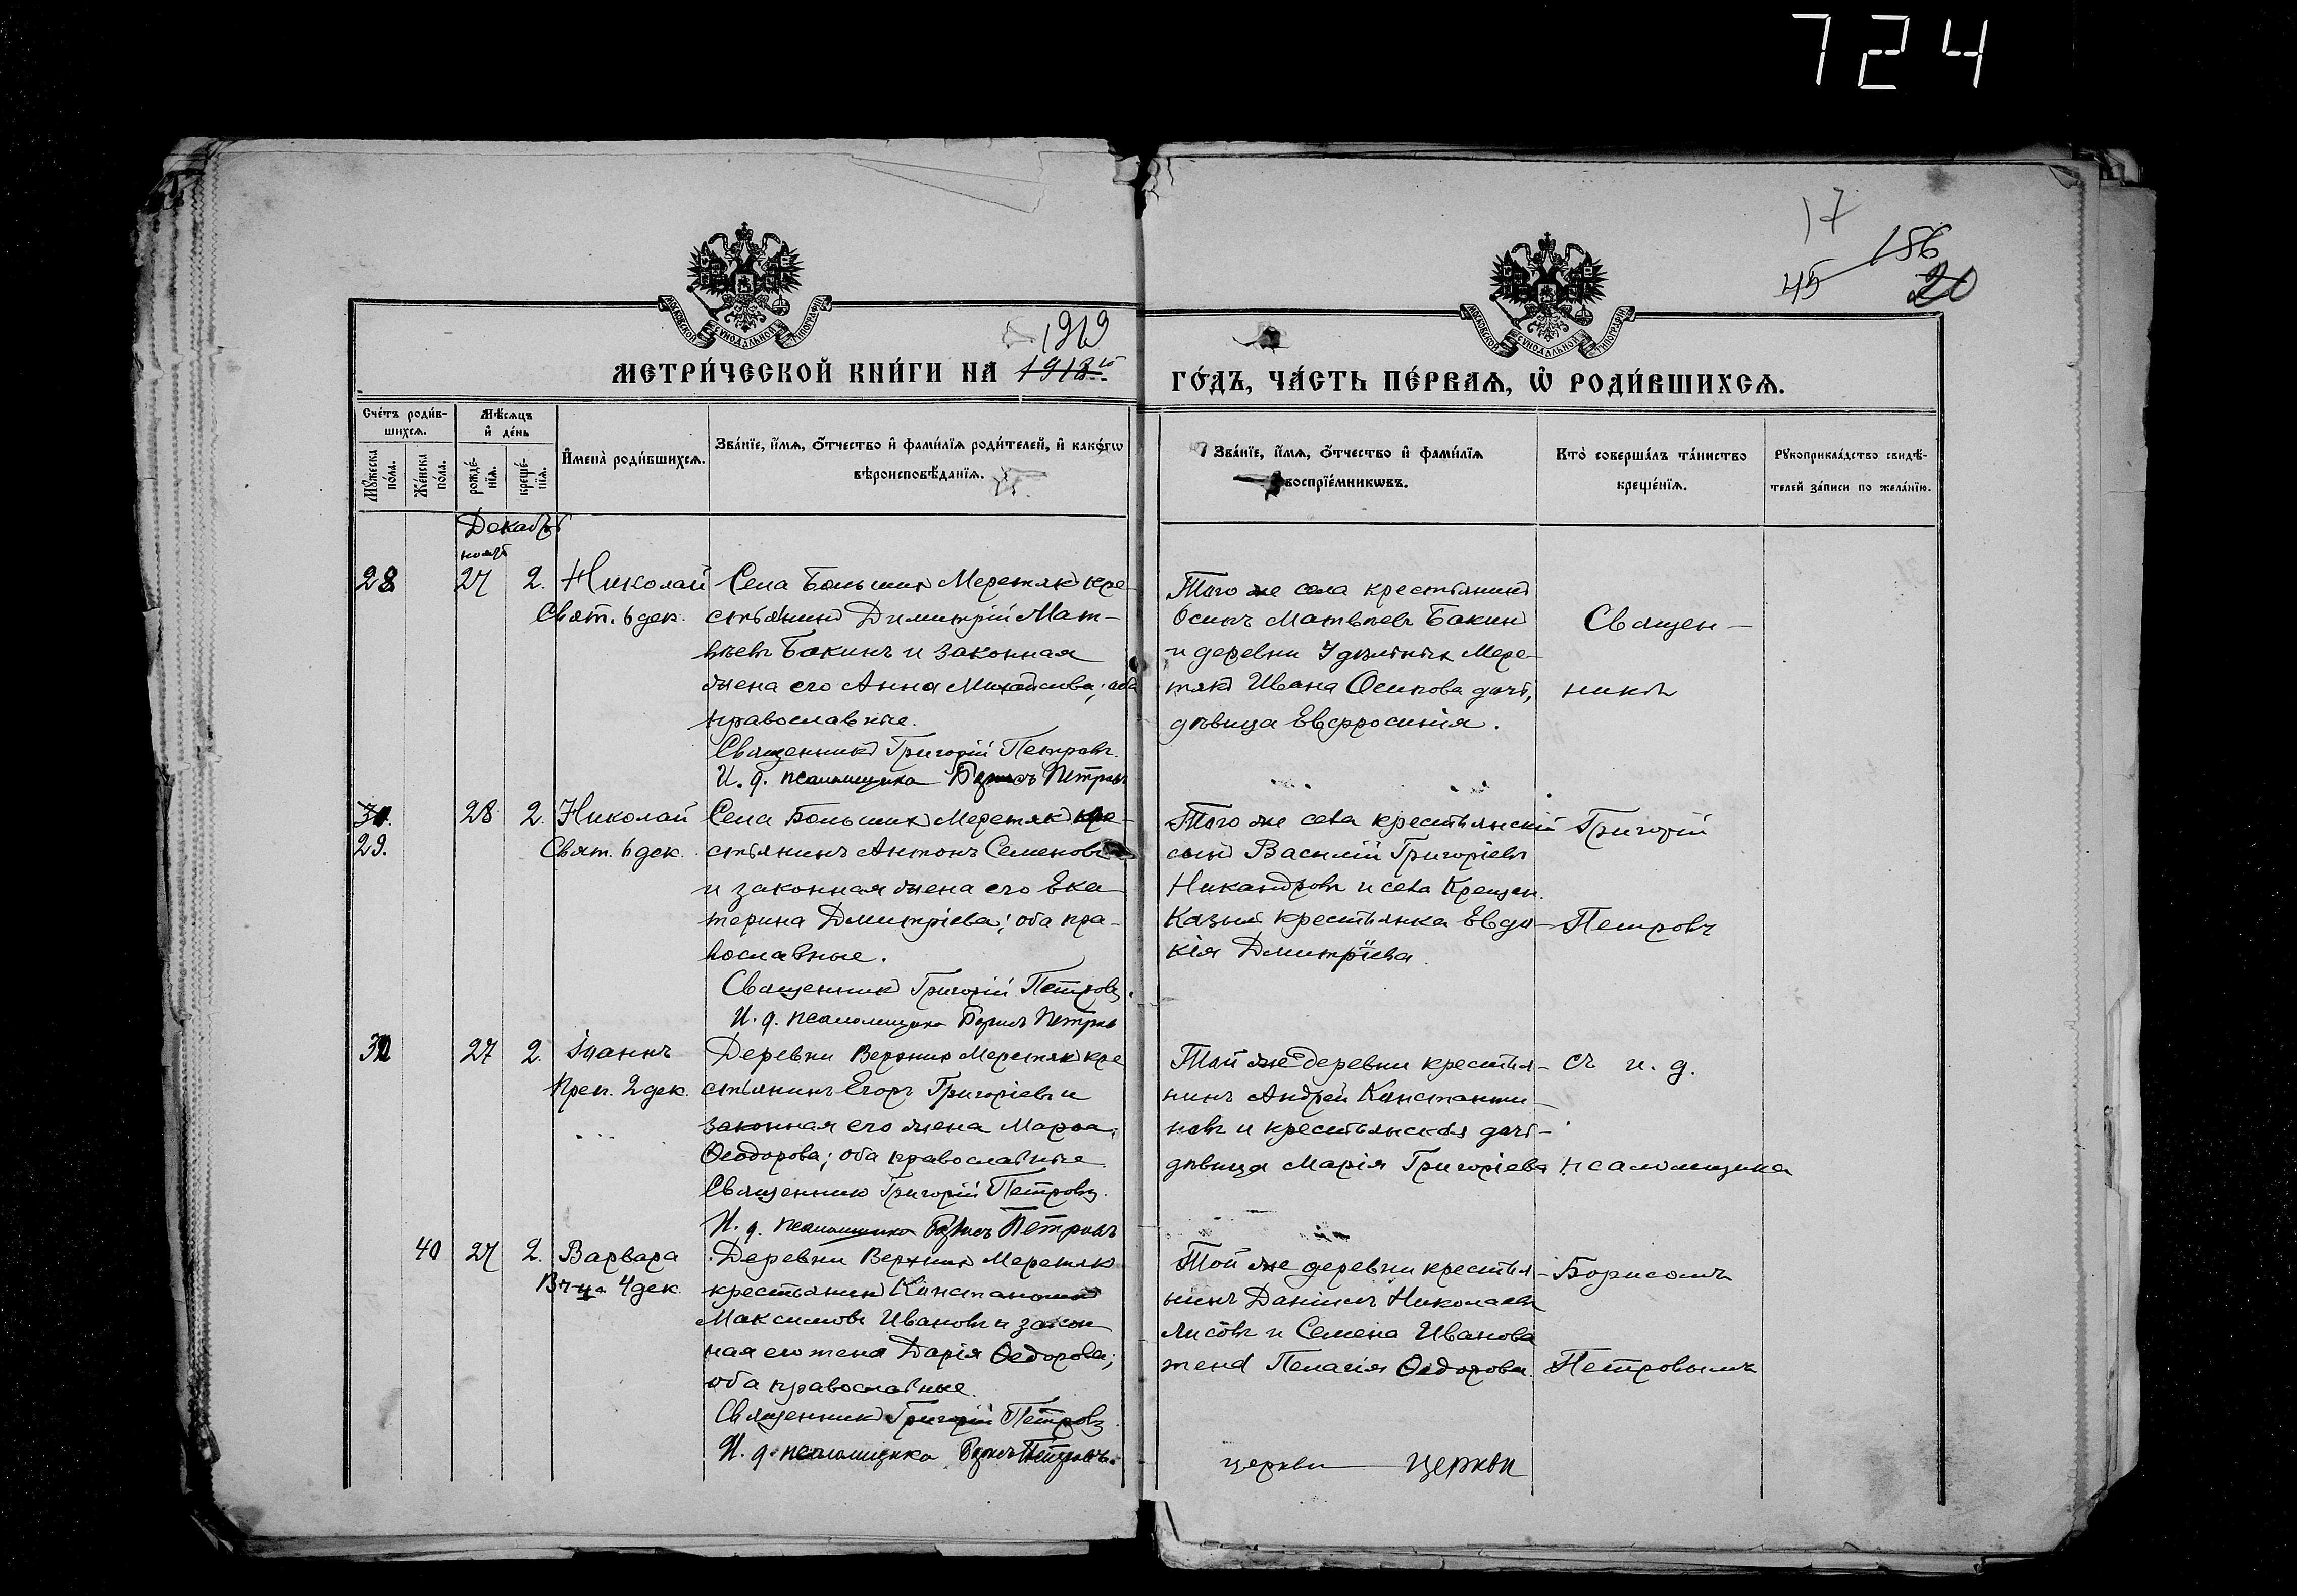 724
17
156
45
20
МОСКОВСКОЙ СѴНОДАЛЬНОЙ ТИПОГРАФІИ
МОСКОВСКОЙ СѴНОДАЛЬНОЙ ТИПОГРАФІИ
1919
МЕТРИ́ЧЕСКОЙ КНИ́ГИ НА 1918го
ГО́ДЪ, ЧА́СТЬ ПЕ́РВАѦ, Ѡ҆ РОДИ́ВШИХСѦ.
Сче́тъ роди́в-
шихсѧ.
Мꙋ́жеска по́ла.
Же́нска по́ла.
Мѣ́сѧцъ
и҆ де́нь
рожде́-
нїѧ.
креще́-
нїѧ.
И҆мена̀ роди́вшихсѧ.
Зва́нїе, и҆́мѧ, ѻ҆́тчество и҆ фами́лїѧ роди́телей, и҆ како́гѡ
вѣроисповѣ́данїѧ.
Зва́нїе, и҆́мѧ, ѻ҆́тчество и҆ фами́лїѧ
воспрїе́мникѡвъ.
Кто̀ соверша́лъ та́инство
креще́нїѧ.
Рꙋкоприкла́дство свидѣ́-
телей за́писи по жела́нїю.
Декабрь
ноябр
28 27 2. Николай
Свят. 6 дек.
Села Большихъ Меретякъ кре-
стьянинъ Димитрій Мат-
вѣевъ Бакинъ и законная
жена его Анна Михайлова; оба
православные.
Священникъ Григорій Петровъ.
И. д. псаломщика Борисъ Петровъ
Того же села крестьянинъ
Осипъ Матвѣевъ Бакинъ
и деревни Удѣльныхъ Мере-
тякъ Ивана Осипова дочь,
дѣвица Евфросинія.
Священ-
никъ
30.
29. 28 2. Николай
Свят. 6 дек.
Села Большихъ Меретякъ кре-
стьянинъ Антонъ Семеновъ
и законная жена его Ека-
терина Дмитріева; оба пра-
вославные.
Священникъ Григорій Петровъ.
И. д. псаломщика Борисъ Петровъ
Того же села крестьянскій
сынъ Василій Григоріевъ
Никандровъ и села Крещен.
Казыл. крестьянка Евдо-
кія Дмитріева.
Григорій
Петровъ
30 27 2. Іоаннъ
Преп. 2 дек.
Деревни Верхнихъ Меретякъ кре
стьянинъ Егоръ Григоріевъ и
законная его жена Марѳа
Ѳеодорова; оба православные
Священникъ Григорій Петровъ.
И. д. псаломщика Борисъ Петровъ
Той же деревни крестья-
нинъ Андрей Константи-
новъ и крестьянская дочь-
дѣвица Марія Григоріева
съ и. д.
псаломщика
40 27 2. Варвара
В-ч-ца 4 дек.
Деревни Верхнихъ Меретякъ
крестьянинъ Константинъ
Максимовъ Ивановъ и закон
ная его жена Дарія Ѳедорова;
оба православные.
Священникъ Григорій Петровъ
И. д. псаломщика Борисъ Петровъ.
Той же деревни крестья-
нинъ Даніилъ Николаевъ
Лисовъ и Семена Иванова
жена Пелагія Ѳедорова.
Борисомъ
Петровымъ
церкви церкви